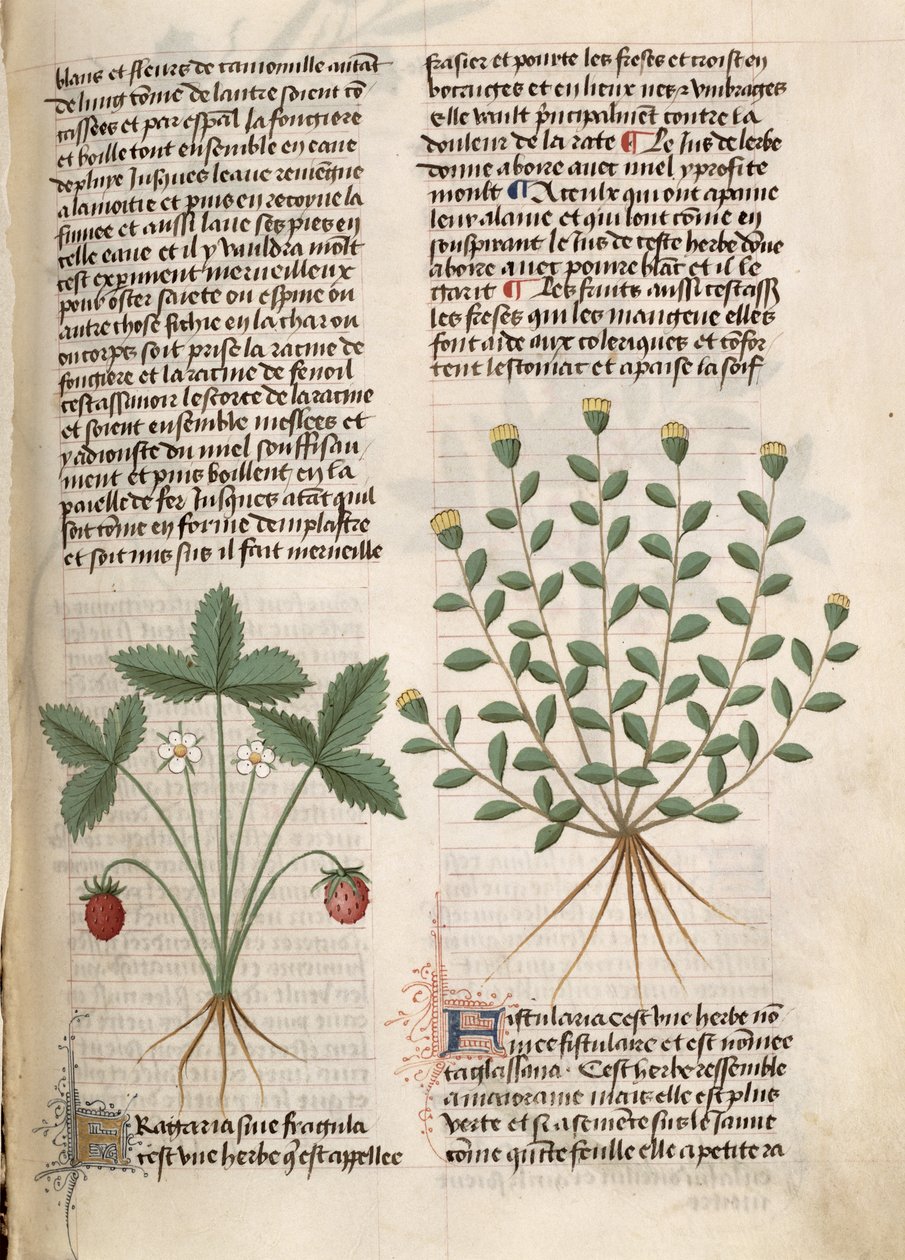 blans et fleurs de camomille autāt
de lung cōme de lautre soient cō
cassees et par espāl la fougiere
et boille tout ensemble en eaue
de pluye Jusques leaue reviengne
a la moitie et puis en recoyue la
fumee et aussi laue ses pies en
telle eaue et il y vauldra mōlt
cest expimẽt merueilleux
pour oster saiete ou espine ou
autre chose fichie en la char ou
on corps soit prise la racine de
fougiere et la racine de fenoil
cestassauoir lescorce de la racine
et soient ensemble meslees et
y adiouste du miel souffisau-
ment et puis boillent en la
paielle de fer Jusques atāt quil
soit cōme en forme demplastre
et soit mis sus il fait merueille
Fragaria siue fragula
cest vne herbe q̄ est appellee
frasier et pourte les freses et croist en
bocaiges et en lieux nes ⁊ vmbrages
elle vault p̄ncipalmēt contre la
douleur de la rate ¶ Le Jus de lerbe
donne a boire auec miel y profite
moult ¶ A ceulx qui ont a paine
leur alaine et qui sont cōme en
souspirant le Jus de ceste herbe dōne
a boire auec poiure blāc et il le
garit ¶ Les fruits aussi cestass̄
les freses qui les mangeue elles
font aide aux coleriques et cōfor-
tent lestomac et apaise la soif
Fistularia Cest vne herbe nō
mee fistulaire et est nōmee
taglassona. Cest herbe ressemble
a maiorame mais elle est plus
verte et si a semēce sus le Jaune
cōme quīte feuille elle a petite ra